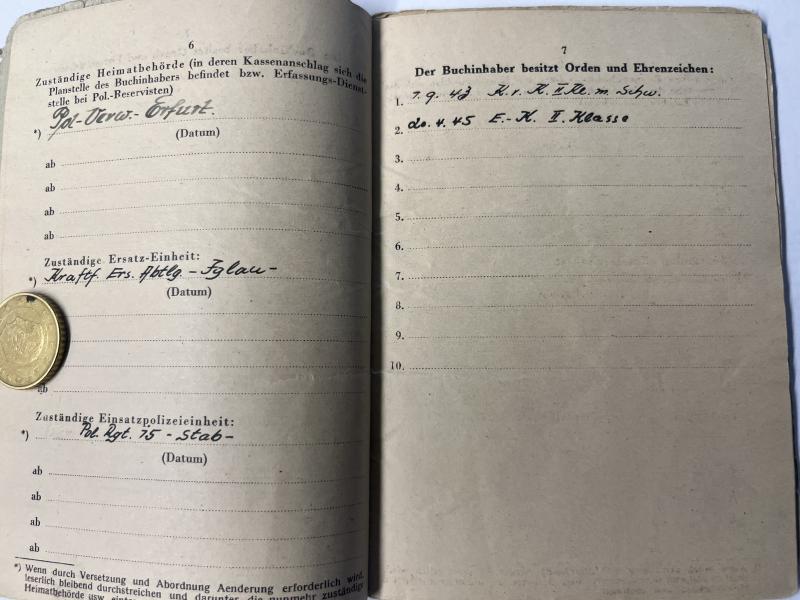 6
Zuständige Heimatbehörde (in deren Kassenanschlag sich die
Planstelle des Buchinhabers befindet bzw. Erfassungs-Dienst-
stelle bei Pol.-Reservisten)
*) Pol-Verw.- Erfurt.
(Datum)
ab
ab
ab
ab
Zuständige Ersatz-Einheit:
*) Kraftf. Ers. Abtlg - Iglau -
(Datum)
ab
Zuständige Einsatzpolizeieinheit:
*) Pol. Rgt. 15 - Stab -
(Datum)
ab
ab
ab
ab
*) Wenn durch Versetzung und Abordnung Aenderung erforderlich wird,
leserlich bleibend durchstreichen und darunter die nunmehr zuständige
Heimatbehörde usw.
7
Der Buchinhaber besitzt Orden und Ehrenzeichen:
1. 1.9.43 K.v.K. II Kl. m. Schw.
2. 4.45 E.-K. II. Klasse
3.
4.
5.
6.
7.
8.
9.
10.